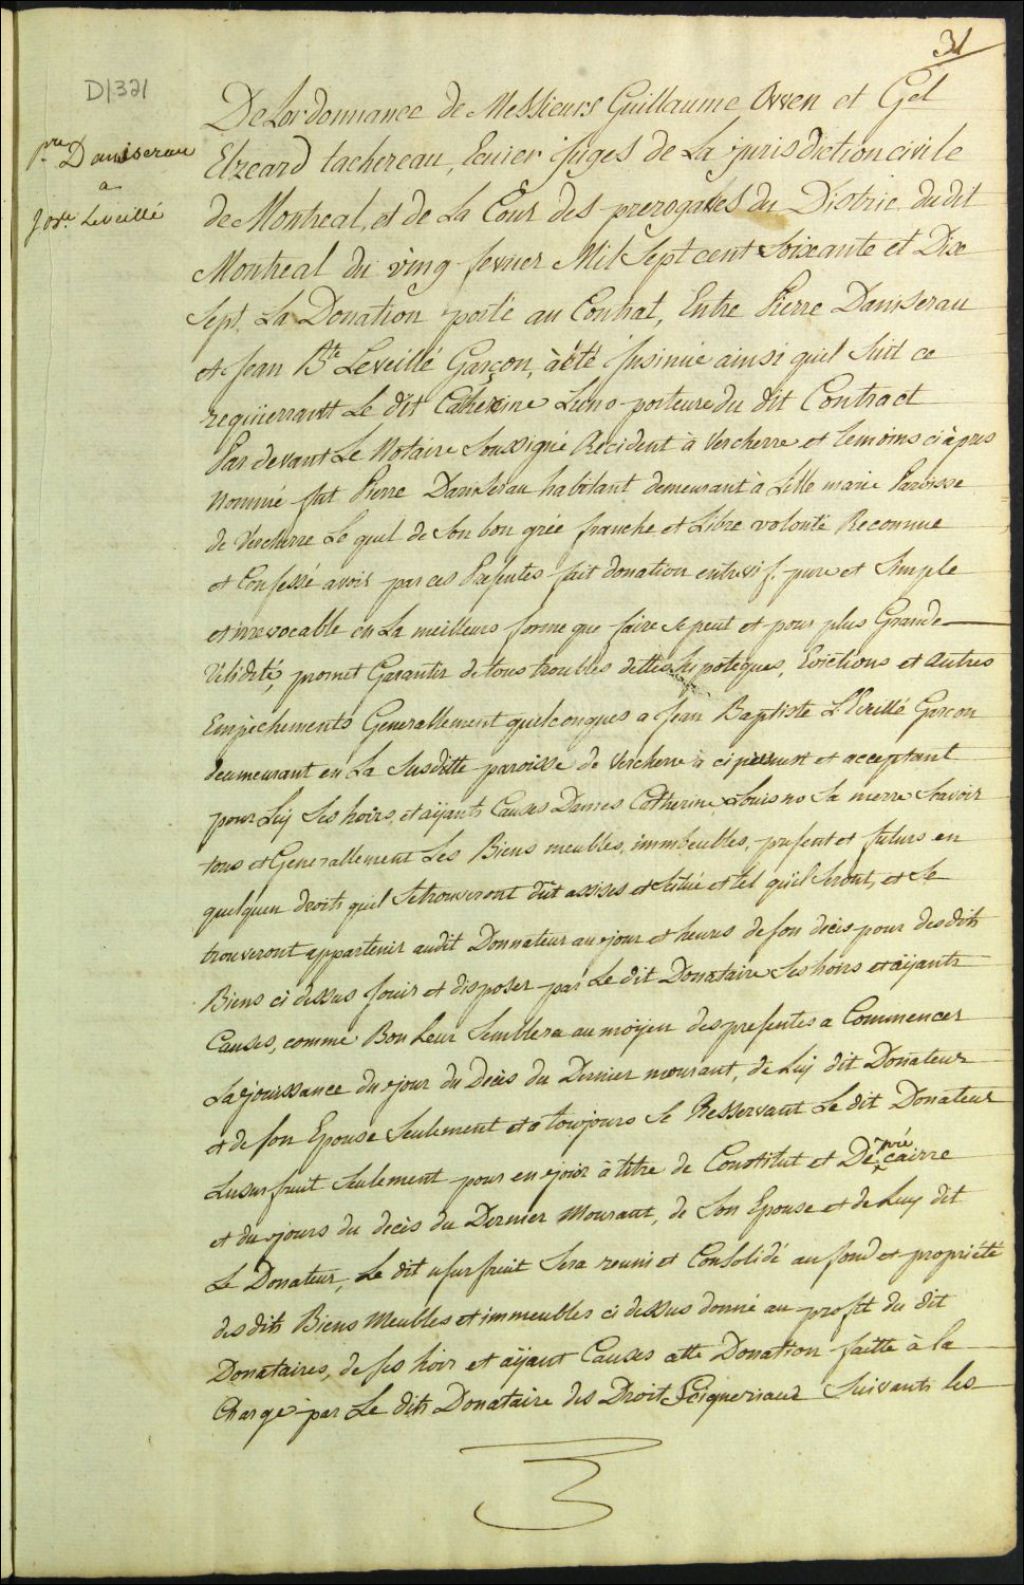 31
D1321
Pre Danserau
a
Josh. Leveillé
De Lordonnance de Messieurs Guillaume Owen et Gel
Elzeard tachereau, Ecuier juges de La jurisdiction civile
de Montreal, et de La Cour des prerogatives du Distric du dit
Montreal du ving fevrier Mil Sept cent Soixante et Dix
Sept, La Donation porté au Contrat, Entre Pierre Danserau
et Jean Bte Leveillé Garçon, à été Jnsinue ainsi quil Suit ce
requierrant Le dit Catherine porteure du dit Contract
Par devant Le Notaire Soussigné Recident à Vercherre et temoins ci à pres
Nommé fut Pierre Danserau habitant demeurant à Lille marie Paroisse
de Vercherre Le quel de Son bon grée franche et Libre volonté Reconnue
et Confessé avoir par ces Presentes fait donation entrevif. pure et Simple
et irrevocable en La meilleure forme que faire Se peut et pour plus Grande
Vélidité, promet Garantir de tous troubles dettes hypoteques, Evictions et Autres
Empêchements Generallement quelconques a Jean Baptiste L'Eveillé Garcon
deumeurant en La Susditte paroisse de Vercherre à ci present et acceptant
pour Luy Ses hoirs, et aÿants Causes Dames Catherine Louisno Sa merre Savoir
tous et Generallement Les Biens meubles, immbeubles, present et futurs en
quelquen droits quil Setrouveront dût assises et Situé et tel qüil Seront, et Se
trouveront appartenir audit Donnateur au jour et heures de son decès pour desdits
Biens ci dessus Jouir et disposer par Le dit Donataire Ses hoirs et aÿants
Causes, comme Bon Leur Semblera au moÿen des presentes a Commencer
La jouissance du jour du Decès du Dernier mourant, de Luy dit Donateur
et de son Epouse Seulement et a toujours Se Resservant Le dit Donateur
Lusurfruit Seulement pour en jouir à titre de Constitut et De précairre
et du jours du decès du Dernier Mourant, de Son Epouse et de Luy dit
Le Donateur, Le dit usurfruit Sera reuni et Consolidé au fond et propriété
desdits Biens Meubles et immeubles ci dessus donné au profit du dit
Donataires, de ses hoirs et aÿant Causes cette Donation faitte à la
Charge par Le dits Donataire des Droit Seigneriaux Suivants les